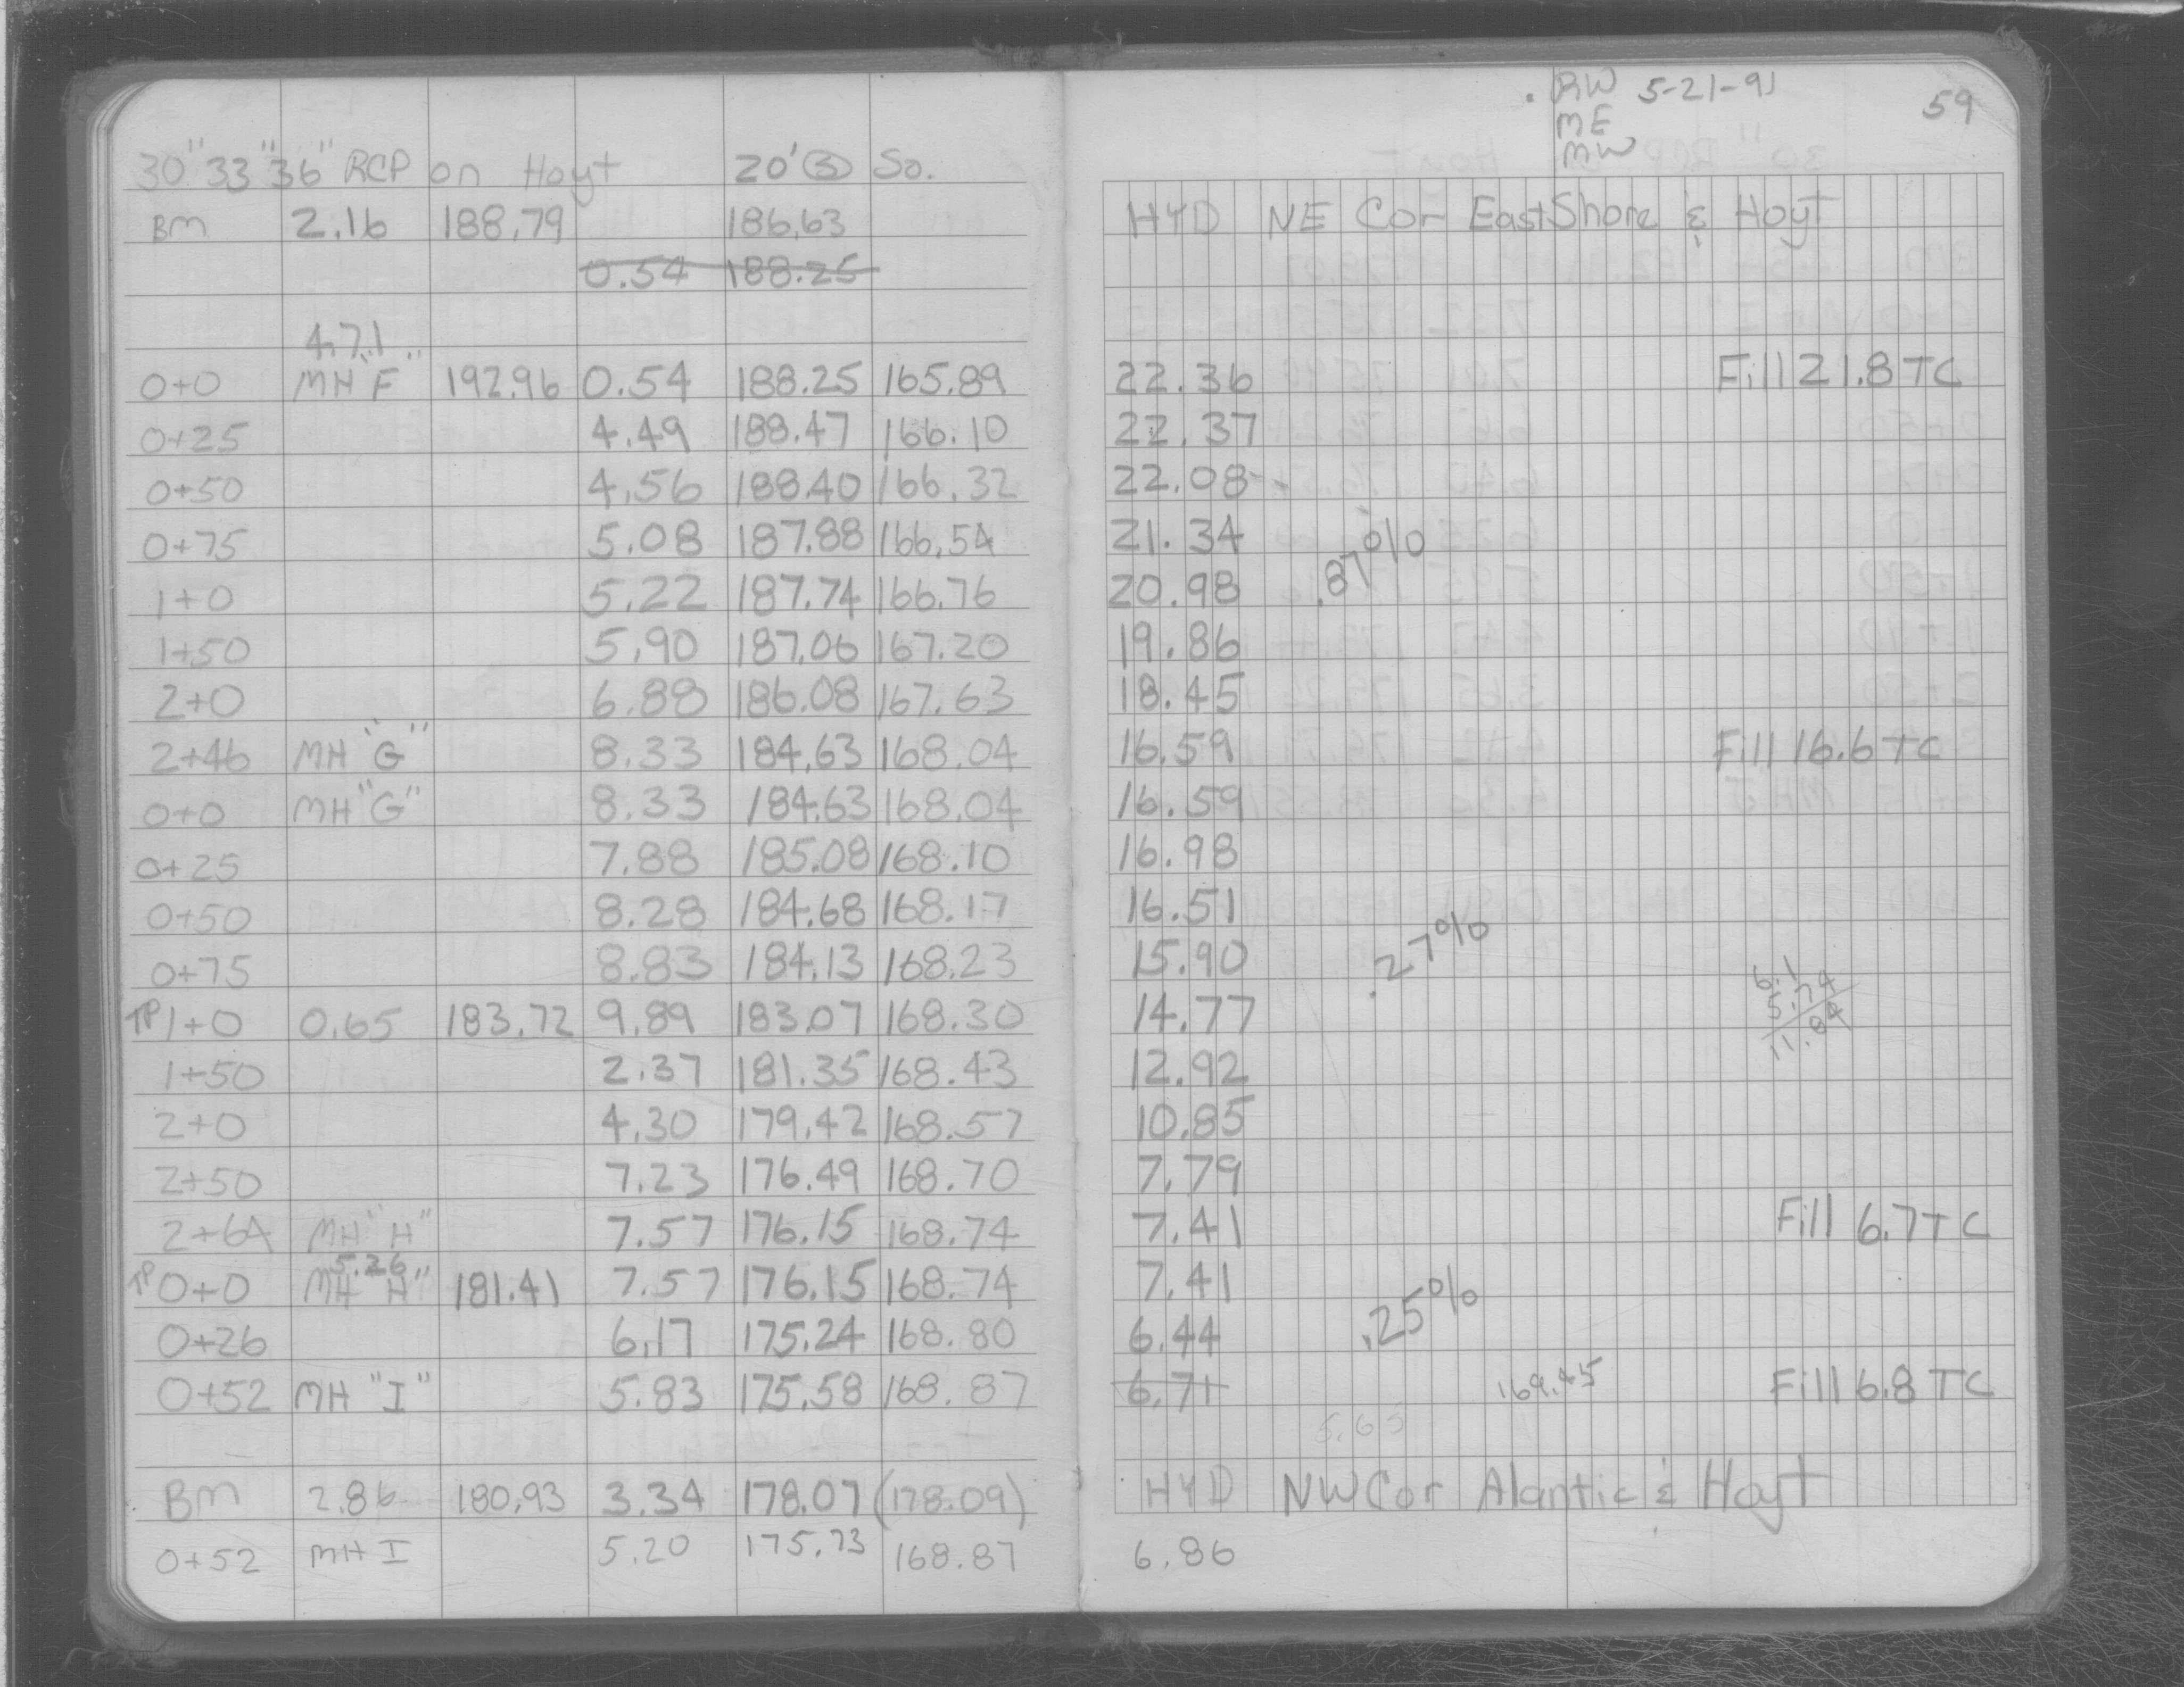 RW 5-21-91 59
ME
MW
30" 33" 36" RCP on Hoyt 20' Ⓢ So.
BM 2.16 188.79 186.63 HYD NE Cor East Shore & Hoyt
0.54 188.25
4.71
0+0 MH "F" 192.96 0.54 188.25 165.89 22.36 Fill 21.8 TC
0+25 4.49 188.47 166.10 22.37
0+50 4.56 188.40 166.32 22.08
0+75 5.08 187.88 166.54 21.34
.87%
1+0 5.22 187.74 166.76 20.98
1+50 5.90 187.06 167.20 19.86
2+0 6.88 186.08 167.63 18.45
2+46 MH "G" 8.33 184.63 168.04 16.59 Fill 16.6 TC
0+0 MH "G" 8.33 184.63 168.04 16.59
0+25 7.88 185.08 168.10 16.98
0+50 8.28 184.68 168.17 16.51
0+75 8.83 184.13 168.23 15.90 .27%
6.1
5.74
11.84
TP 1+0 0.65 183.72 9.89 183.07 168.30 14.77
1+50 2.37 181.35 168.43 12.92
2+0 4.30 179.42 168.57 10.85
2+50 7.23 176.49 168.70 7.79
2+64 MH "H" 7.57 176.15 168.74 7.41 Fill 6.7 TC
5.26
TP 0+0 MH "H" 181.41 7.57 176.15 168.74 7.41
0+26 6.17 175.24 168.80 6.44 .25%
0+52 MH "I" 5.83 175.58 168.87 6.71 169.45 Fill 6.8 TC
5.65
BM 2.86 180.93 3.34 178.07 (178.09) HYD NW Cor Alantic & Hoyt
0+52 MH I 5.20 175.73 168.87 6.86